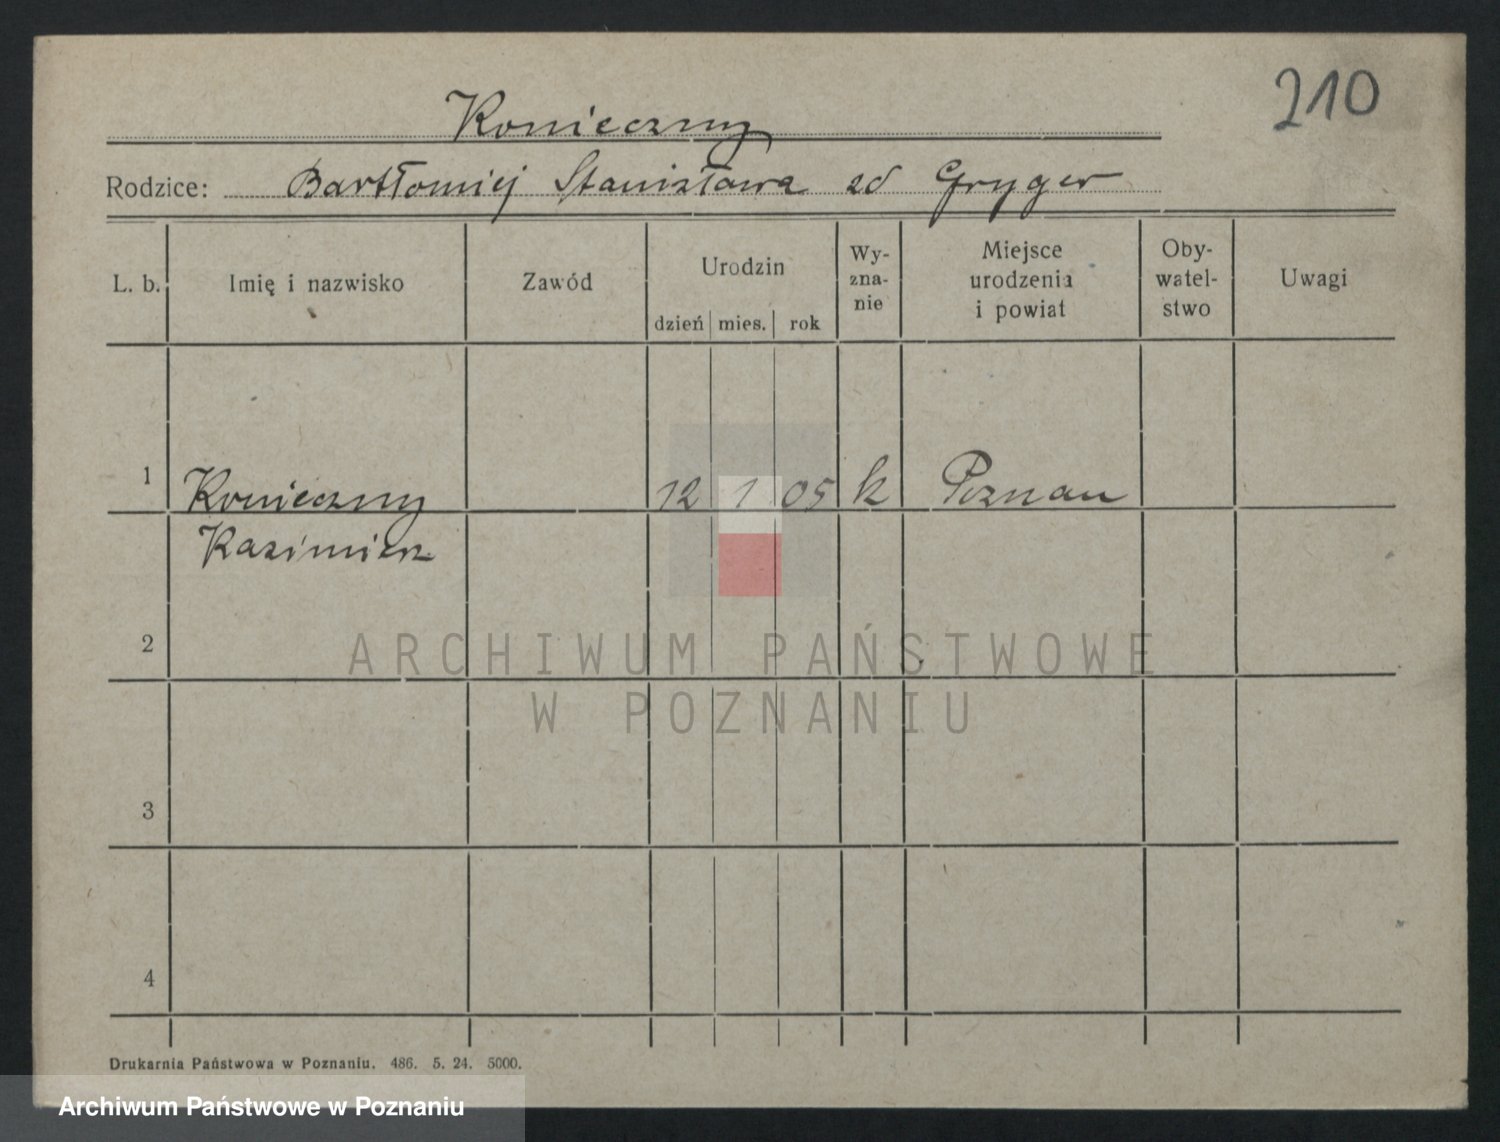 210
Konieczny
Rodzice: Bartłomiej Stanisława zd Gryger
L. b. Imię i nazwisko Zawód Urodzin dzień mies. rok Wy-zna-nie Miejsce urodzenia i powiat Oby-watel-stwo Uwagi
1 Konieczny 12 1 05 k Poznan
Kazimierz
2
ARCHIWUM PAŃSTWOWE
W POZNANIU
3
4
Drukarnia Państwowa w Poznaniu. 486. 5. 24. 5000.
Archiwum Państwowe w Poznaniu